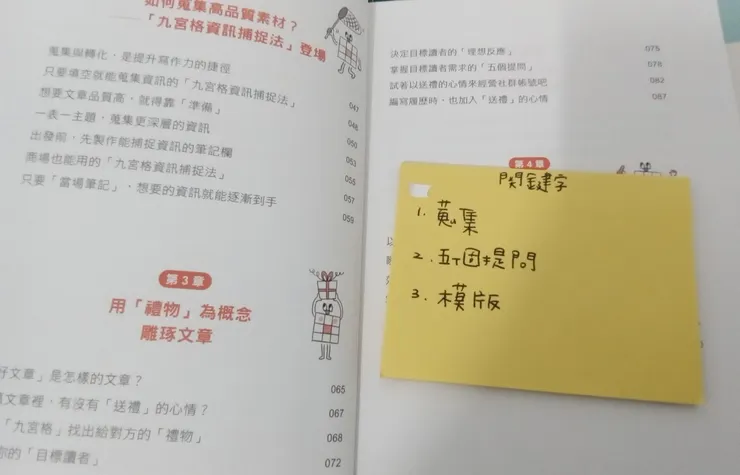 如何蒐集高品質素材?
——「九宮格資訊捕捉法」登場
蒐集與轉化,是提升寫作力的捷徑
只要填空就能蒐集資訊的「九宮格資訊捕捉法」 047
想要文章品質高,就得靠「準備」 048
一表一主題,蒐集更深層的資訊 050
出發前,先製作能捕捉資訊的筆記欄 053
商場也能用的「九宮格資訊捕捉法」 055
只要「當場筆記」,想要的資訊就能逐漸到手 057
059
第3章
用「禮物」為概念
雕琢文章
好文章」是怎樣的文章? 065
文章裡,有沒有「送禮」的心情? 067
「九宮格」找出給對方的「禮物」 068
你的「目標讀者」 072
決定目標讀者的「理想反應」 075
掌握目標讀者需求的「五個提問」 078
試著以送禮的心情來經營社群帳號吧 082
編寫履歷時,也加入「送禮」的心情 087
第4章
関鍵字
1. 蒐集
2. 五個提問
3. 模版